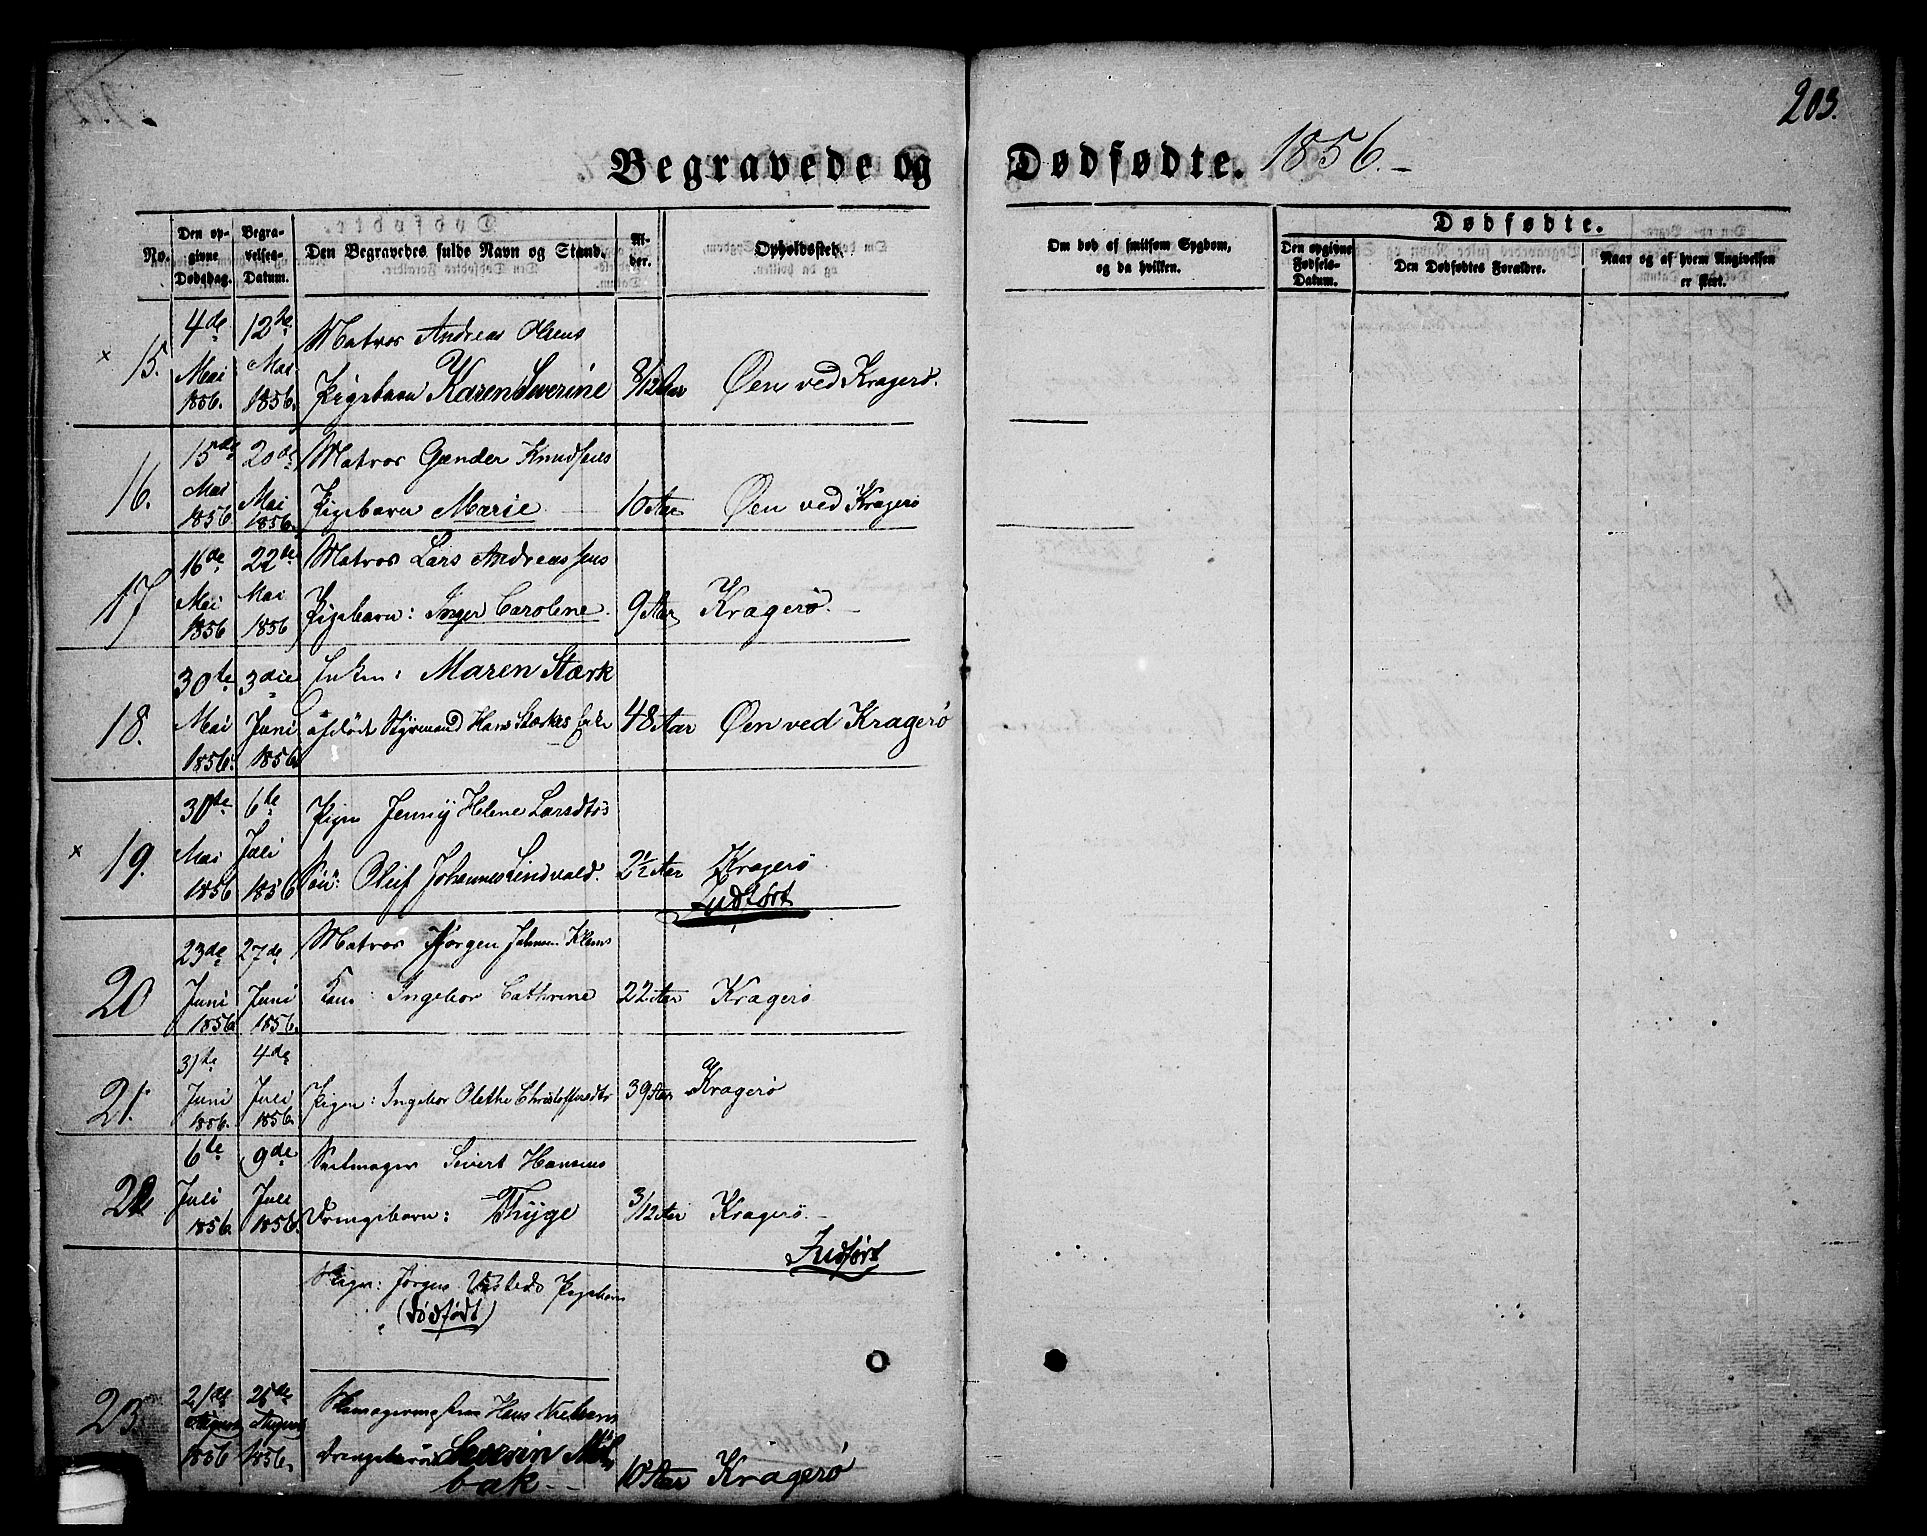 203.
Begravede og Dødfødte. 1856.-
No.
Den opgivne Dødsdag.
Begravelses-Datum.
Den Begravedes fulde Navn og Stand.
Alder.
Opholdssted.
Om død af smitsom Sygdom, og da hvilken.
Dødfødte.
Den opgivne Fødsels-Datum.
Den Dødfødtes Forældre.
Naar og af hvem Angivelsen er skeet.
× 15. 4de Mai 1856. 12te Mai 1856. Matros Andreas Olsens
Pigebarn Karen Severine 8/12 Aar Øen ved Kragerø.
16. 15de Mai 1856 20de Mai 1856. Matros Gænder Knudsens
Pigebarn Marie 10 Aar Øen ved Kragerø
17 16de Mai 1856 22de Mai 1856 Matros Lars Andreassens
Pigebarn: Inger Carolene. 9 Aar Kragerø.
18. 30te Mai 1856. 3die Juni 1856. Enken: Maren Stærk
afdøde Styrmand Hans Stærkes Enke 48 Aar Øen ved Kragerø
× 19. 30te Mai 1856 6te Juli 1856 Pigen Jenny Helene Larsdtrs
Søn: Oluf Johannes Lindvald. 2½ Aar Kragerø
Indført
20 23de Juni 1856. 27de Juni 1856. Matros Jørgen Klems
Kone: Ingebor Cathrine 22 Aar Kragerø
21. 31te Juni 1856. 4de Juli 1856. Pigen: Ingebor Olethe Christoffersdtr 39 Aar Kragerø
22. 6te Juli 1856. 9de Juli 1856. Seilmager Sivert Hansens
Drengebarn: Thyge 3/12 Aar Kragerø.
Indført
Jørgen Pigebarn
(Dødfødt)
23. 21de August 1856 26de August 1856. Hans Nielsens
Drengebarn Severin Møl
bak.- 10 Aar Kragerø